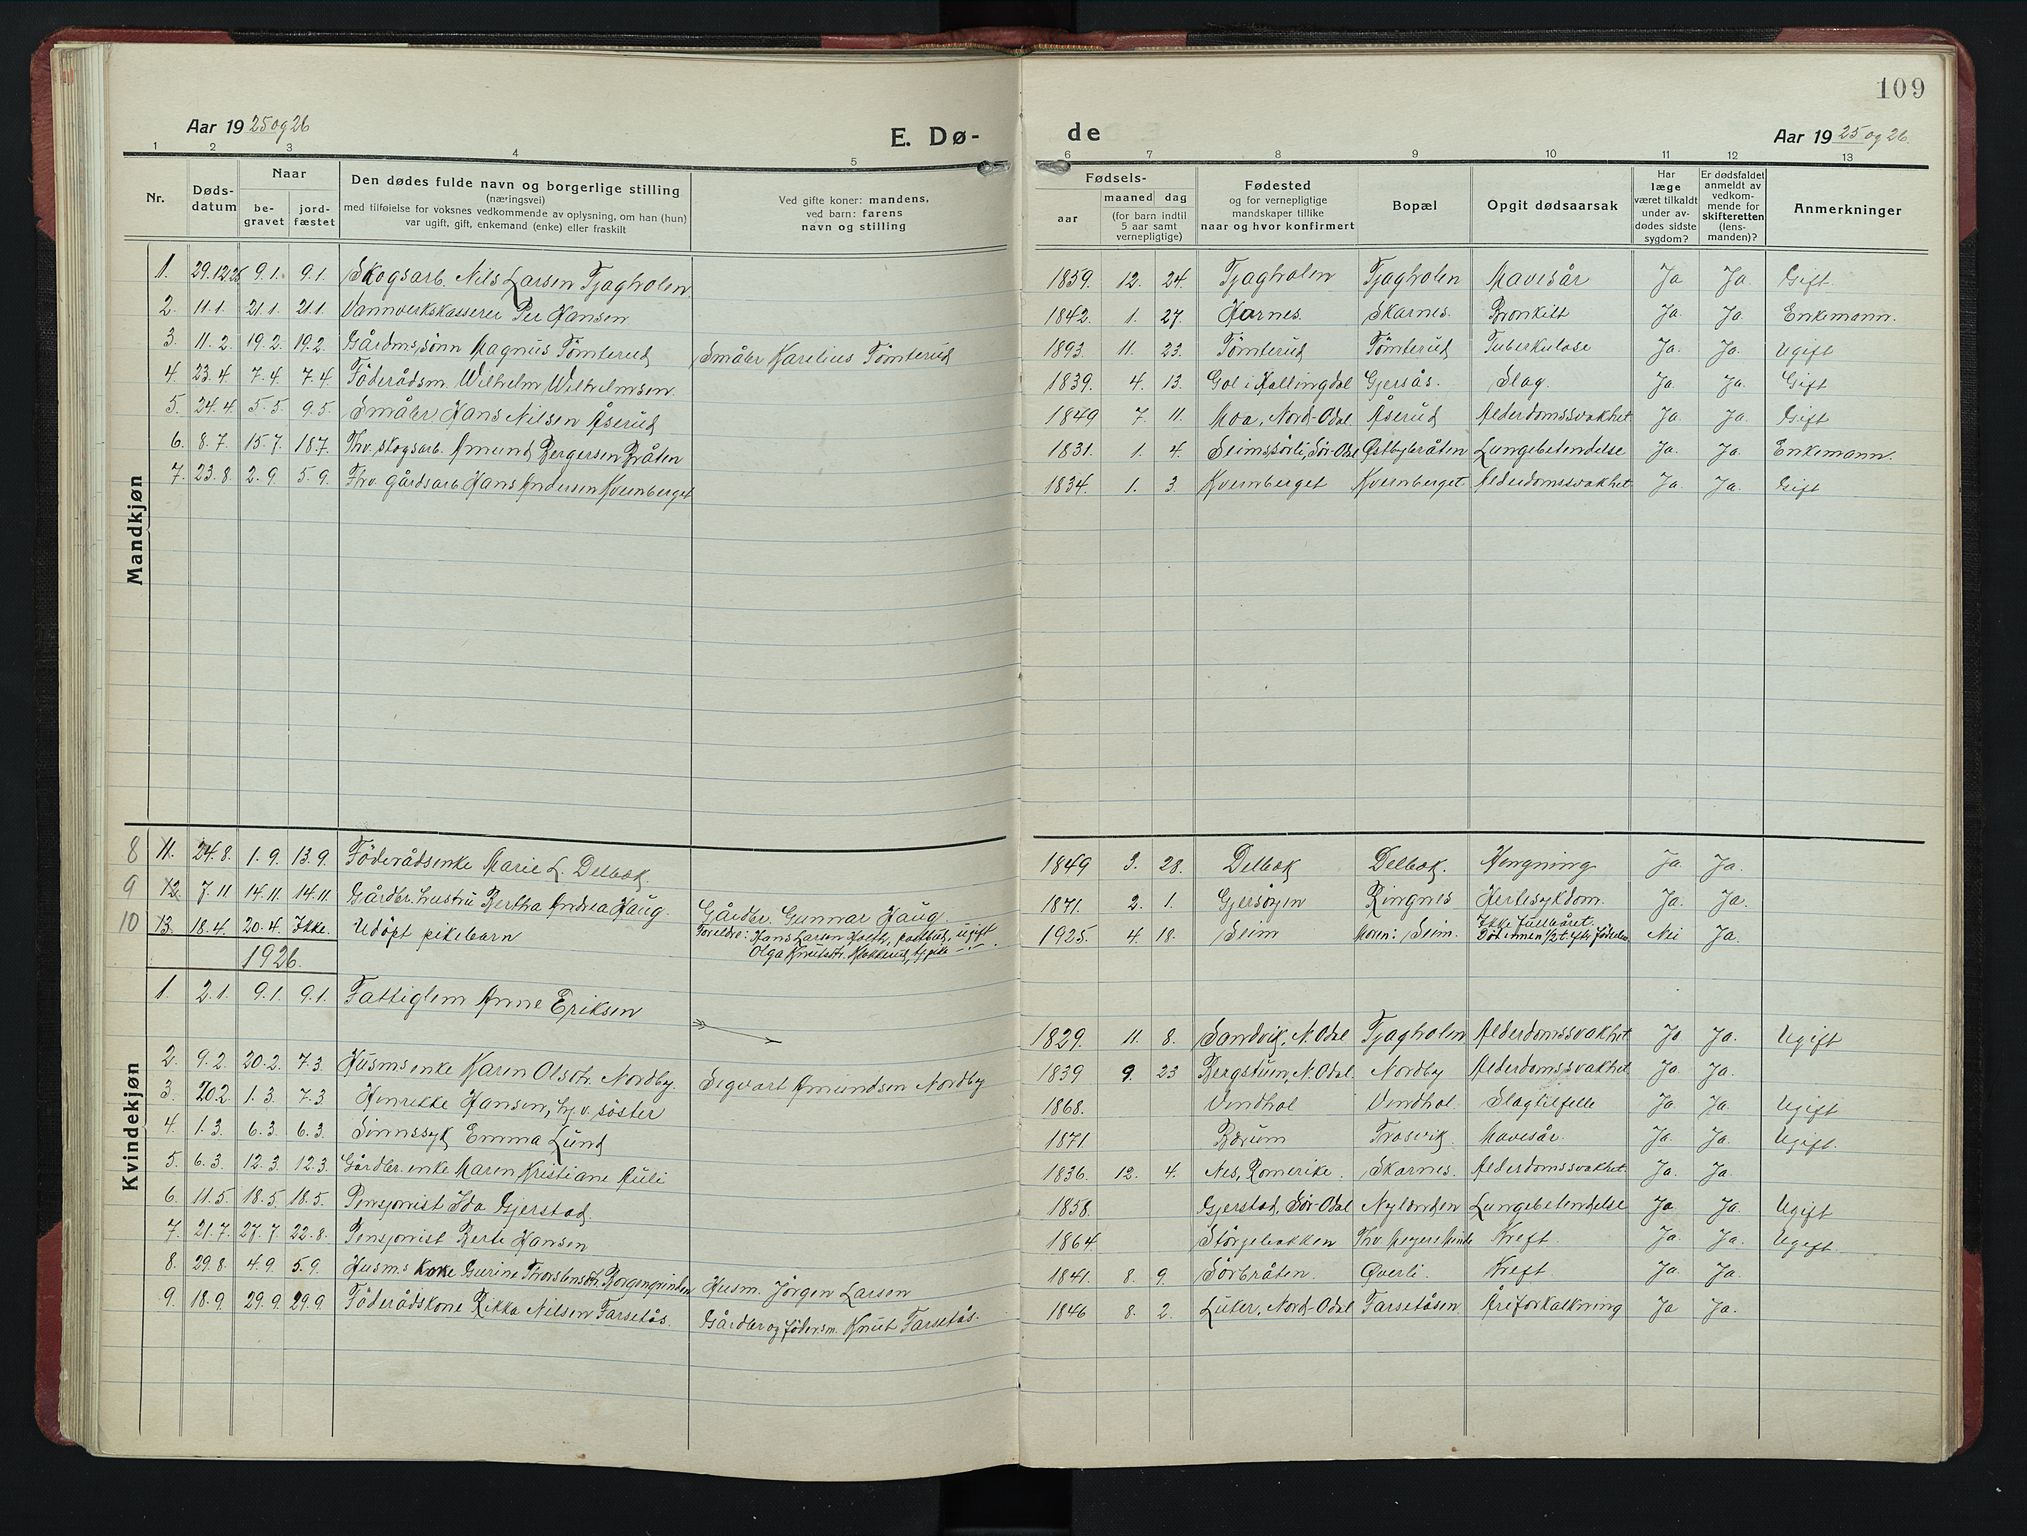 109
Aar 1925og26
E. Dø-
de
Aar 1925 og 26.
1 2 3 4 5 6 7 8 9 10 11 12 13
Nr.
Døds-
datum
Naar
be-
gravet
jord-
fæstet
Den dødes fulde navn og borgerlige stilling
(næringsvei)
med tilføielse for voksnes vedkommende av oplysning, om han (hun)
var ugift, gift, enkemand (enke) eller fraskilt
Ved gifte koner: mandens,
ved barn: farens
navn og stilling
Fødsels-
aar
maaned dag
(for barn indtil
5 aar samt
vernepligtige)
Fødested
og for vernepligtige
mandskaper tillike
naar og hvor konfirmert
Bopæl
Opgit dødsaarsak
Har
læge
været tilkaldt
under av-
dødes sidste
sygdom?
Er dødsfaldet
anmeldt av
vedkom-
mende for
skifteretten
(lens-
manden)?
Anmerkninger
Mandkjøn
1. 29.12.25 9.1. 9.1. Skogsarb. Nils Larsen Tjagholen. 1859. 12. 24. Tjagholen Tjagholen Mavesår Ja Ja. Gift.
2. 11.1. 21.1. 21.1. Vannverkskasserer Per Hansen 1842. 1. 27. Skarnes. Bronkitt Ja. Ja. Enkemann.
3. 11.2. 19.2. 19.2. Gårdms.sønn Magnus Tømterud Småbr Karelius Tømterud 1893. 11. 23. Tømterud Tømterud Tuberkulose Ja. Ja. Ugift
4. 23.4. 7.4. 7.4. Föderådsm. Wilhelm Wilhelmsen. 1839. 4. 13. Gol i Hallingdal Gjersås. Slag. Ja. Ja. Gift
5. 24.4. 5.5. 9.5. Småbr Hans Nilsen Åserud 1849 7. 11. Moa, Nord-Odal Åserud Alderdomssvakhet Ja. Ja. Gift
6. 8.7. 15.7. 18.7. Fhv. skogsarb. Amund Bergersen Bråten 1831. 1. 4. Seimssörli, Sör-Odal Østbybråten Lungebetendelse Ja. Ja. Enkemann.
7. 23.8. 2.9. 5.9. Fhv. gårdsarb Hans Andersen Kvernberget 1834. 1. 3. Kvernberget Kvernberget. Alderdomssvakhet Ja. Ja. Gift
Kvindekjøn
8 11. 24.8. 1.9. 13.9. Föderådsenke Marie L. Delbæk. 1849 3. 28. Delbæk Delbæk. Hengning Ja. Ja.
9 12. 7.11 14.11. 14.11. Gårdbr. hustru Bertha Andrea Haug. Gårdbr. Gunnar Haug. 1871. 2. 1. Gjersöyen Ringnes Hertesykdom. Ja. Ja.
10 13. 18.4. 20.4. Ikke. Udöpt pikebarn Foreldre: Hans Larsen Holth, postbud, ugift 1925. 4. 18. Seim Moren: Seim. Ikke fullbåret. Nei Ja.
Olga Knutsdtr. Hokkerud, tj. pike
Död innen 1/2 t. eftr födselen
1926.
1. 2.1. 9.1. 9.1. Fattiglem Anne Eriksen 1829. 11. 8. Sandvik, N. Odal Tjagholen Alderdomssvakhet Ja Ja. Ugift
2. 9.2. 20.2. 7.3. Husmsenke Karen Olsdtr. Nordby. Segvart Amundsen Nordby 1839 9. 23 Bergstuen, N. Odal. Nordby Alderdomssvakhet Ja. Ja.
3. 20.2. 1.3. 7.3 Henrikke Hansen, hj.v. söster 1868. Vendhol Vendhol. Slagtilfelle Ja. Ja. Ugift
4. 1.3. 6.3. 6.3. Sinnssyk Emma Lund 1871 Bærum Trosvik. Mavesår. Ja. Ja. Ugift.
5. 6.3. 12.3. 12.3. Gårdbr. enke Maren Kristiane Auli 1836. 12. 4. Nes, Romerike. Skarnes. Alderdomssvakhet. Ja. Ja.
6. 11.5. 18.5. 18.5. Pensjonist Ida Gjerstad. 1858. Gjerstad, Sör-Odal Nylænden Lungebetendelse Ja Ja. Ugift
7. 21.7. 27.7. 22.8. Pensjonist Berte Hansen 1864. Störjebakken Kreft. Ja. Ja. Ugift.
8. 29.8. 4.9. 5.9. Husms kone Gurine Thorstensdtr. Borgengrinden Husm. Jörgen Larsen 1841. 8. 9. Sörbråten. Øverli. Kreft Ja. Ja.
9. 18.9. 29.9. 29.9. Föderådskone Rikka Nilsen Tarsetås. Gårdbr og föderm. Knut Tarsetås. 1846 8. 2. Luker, Nord-Odal Tarsetåsen. Åreforkalkning Ja Ja.